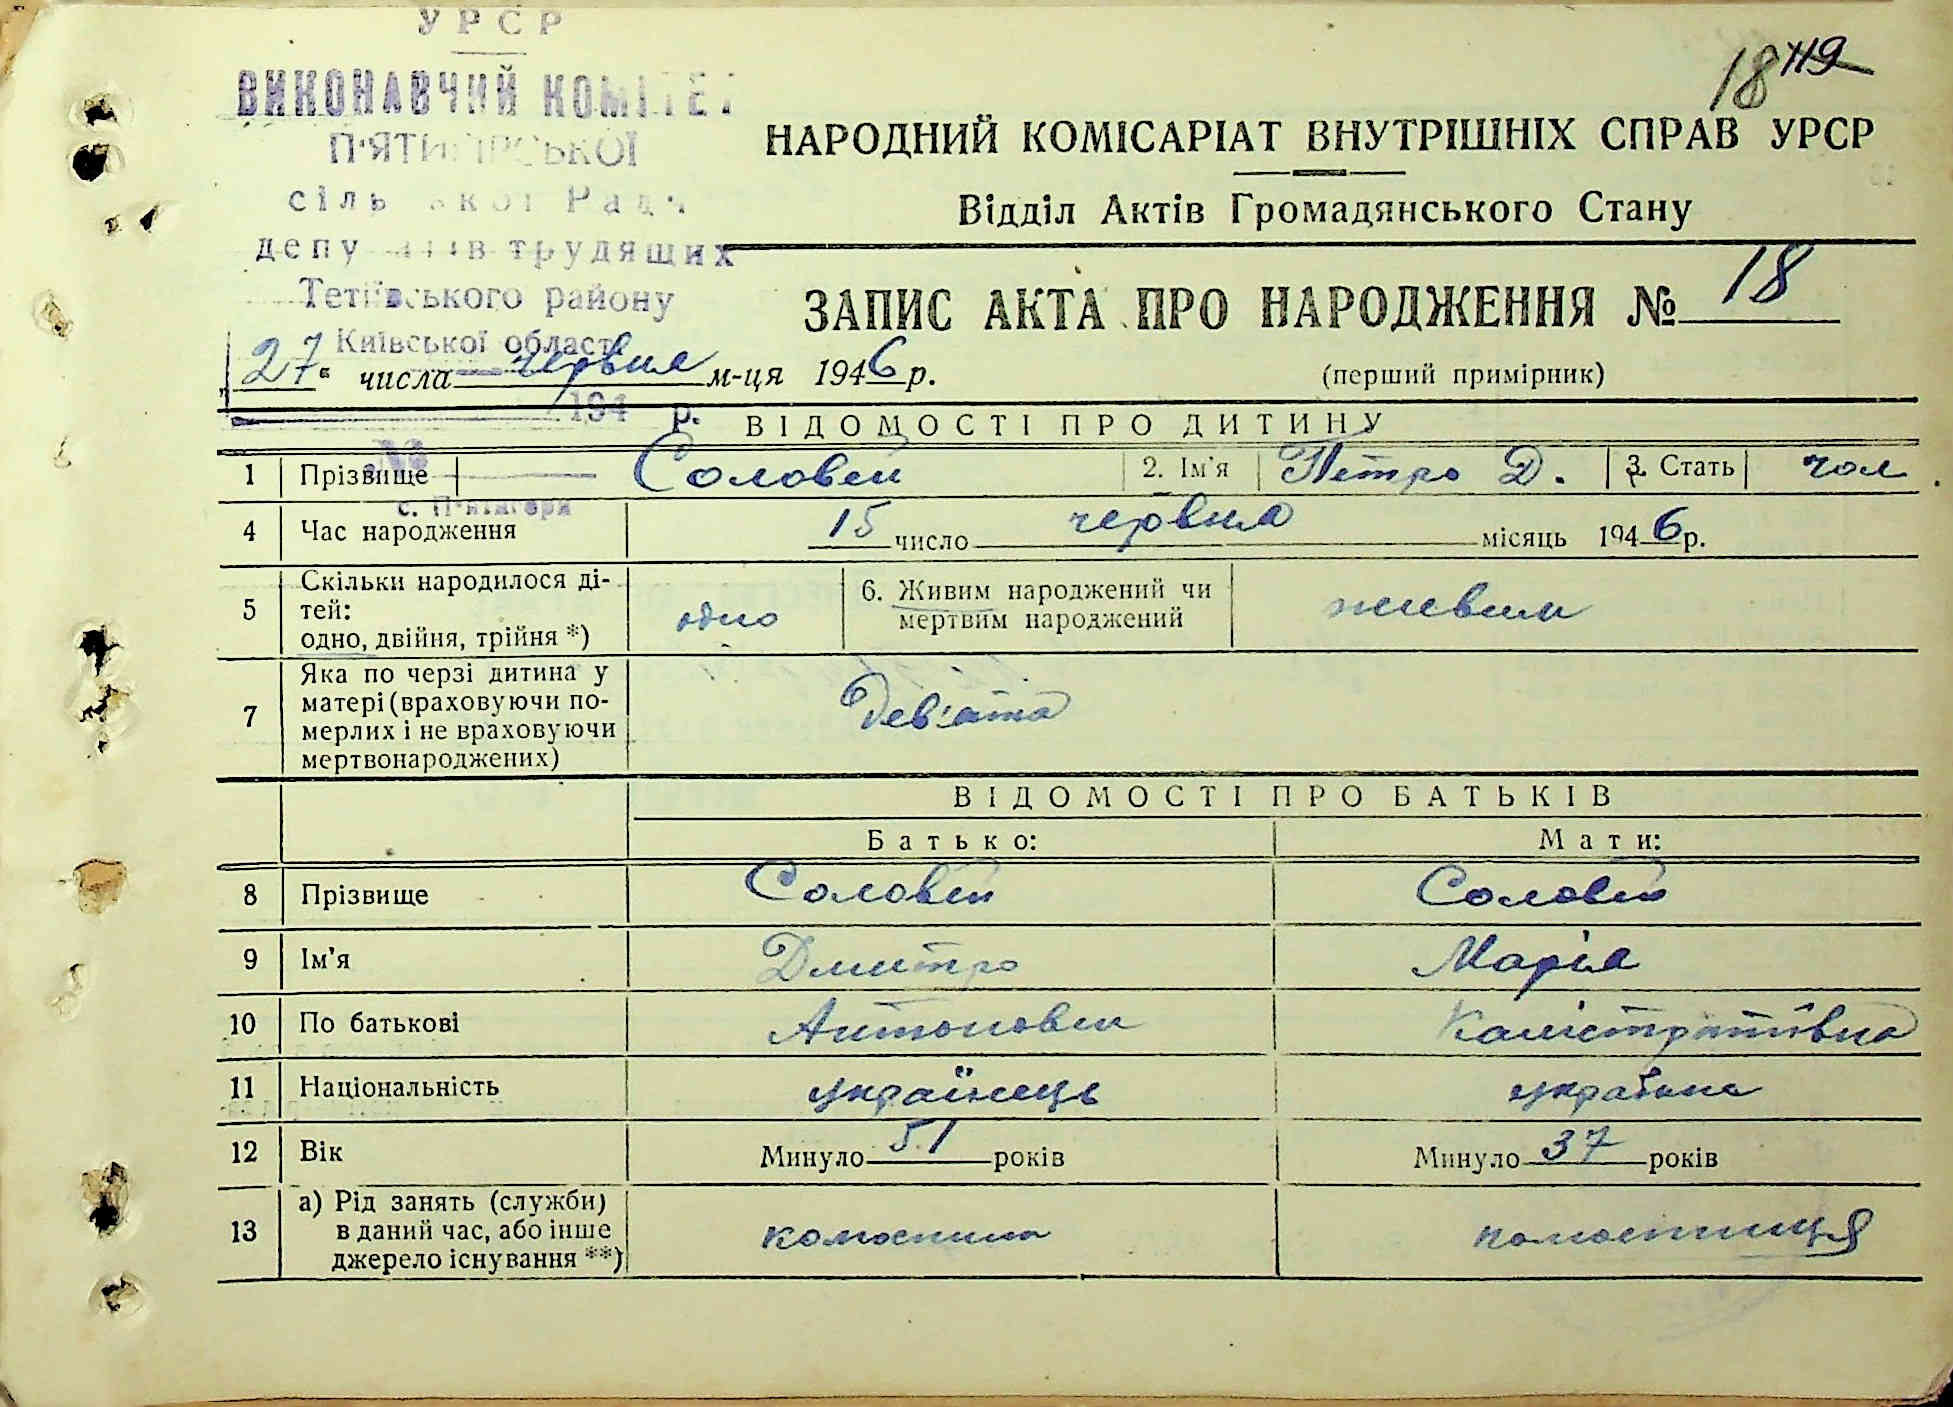 УРСР
ВИКОНАВЧИЙ КОМІТЕТ
П'ЯТИГІРСЬКОЇ
сільської Ради
депутатів трудящих
Тетіївського району
Київської області
194 р.
№
с. П'ятигори
18 119
НАРОДНИЙ КОМІСАРІАТ ВНУТРІШНІХ СПРАВ УРСР
Відділ Актів Громадянського Стану
ЗАПИС АКТА ПРО НАРОДЖЕННЯ № 18
27 числа червня м-ця 1946 р.
(перший примірник)
ВІДОМОСТІ ПРО ДИТИНУ
1 Прізвище Соловей 2. Ім'я Петро Д. 3. Стать чол
4 Час народження 15 число червня місяць 1946 р.
5 Скільки народилося ді-
тей:
одно, двійня, трійня *) одно
6. Живим народжений чи
мертвим народжений живим
7 Яка по черзі дитина у
матері (враховуючи по-
мерлих і не враховуючи
мертвонароджених) Дев'ята
ВІДОМОСТІ ПРО БАТЬКІВ
Батько: Мати:
8 Прізвище Соловей Соловей
9 Ім'я Дмитро Марія
10 По батькові Антонович Калістратівна
11 Національність українець українка
12 Вік Минуло 51 років Минуло 37 років
13 а) Рід занять (служби)
в даний час, або інше
джерело існування **) колгоспник колгоспниця